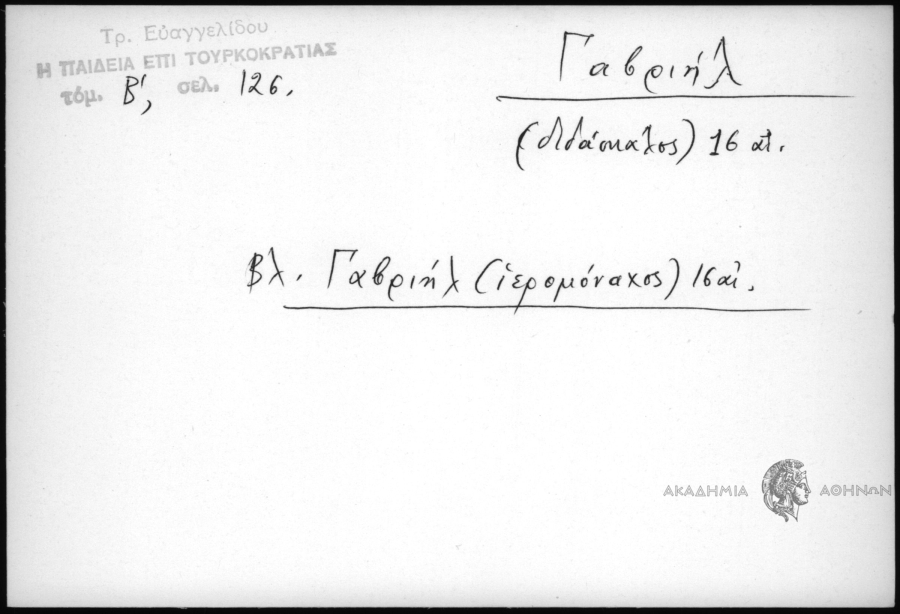 Τρ. Εὐαγγελίδου
Η ΠΑΙΔΕΙΑ ΕΠΙ ΤΟΥΡΚΟΚΡΑΤΙΑΣ
τόμ. Β', σελ. 126.
Γαβριήλ
(διδάσκαλος) 16 αἰ.
Βλ. Γαβριήλ (ἱερομόναχος) 16 αἰ.
ΑΚΑΔΗΜΙΑ ΑΘΗΝΩΝ